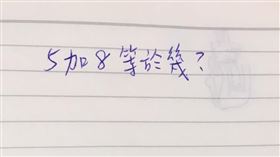 5加8等於幾?